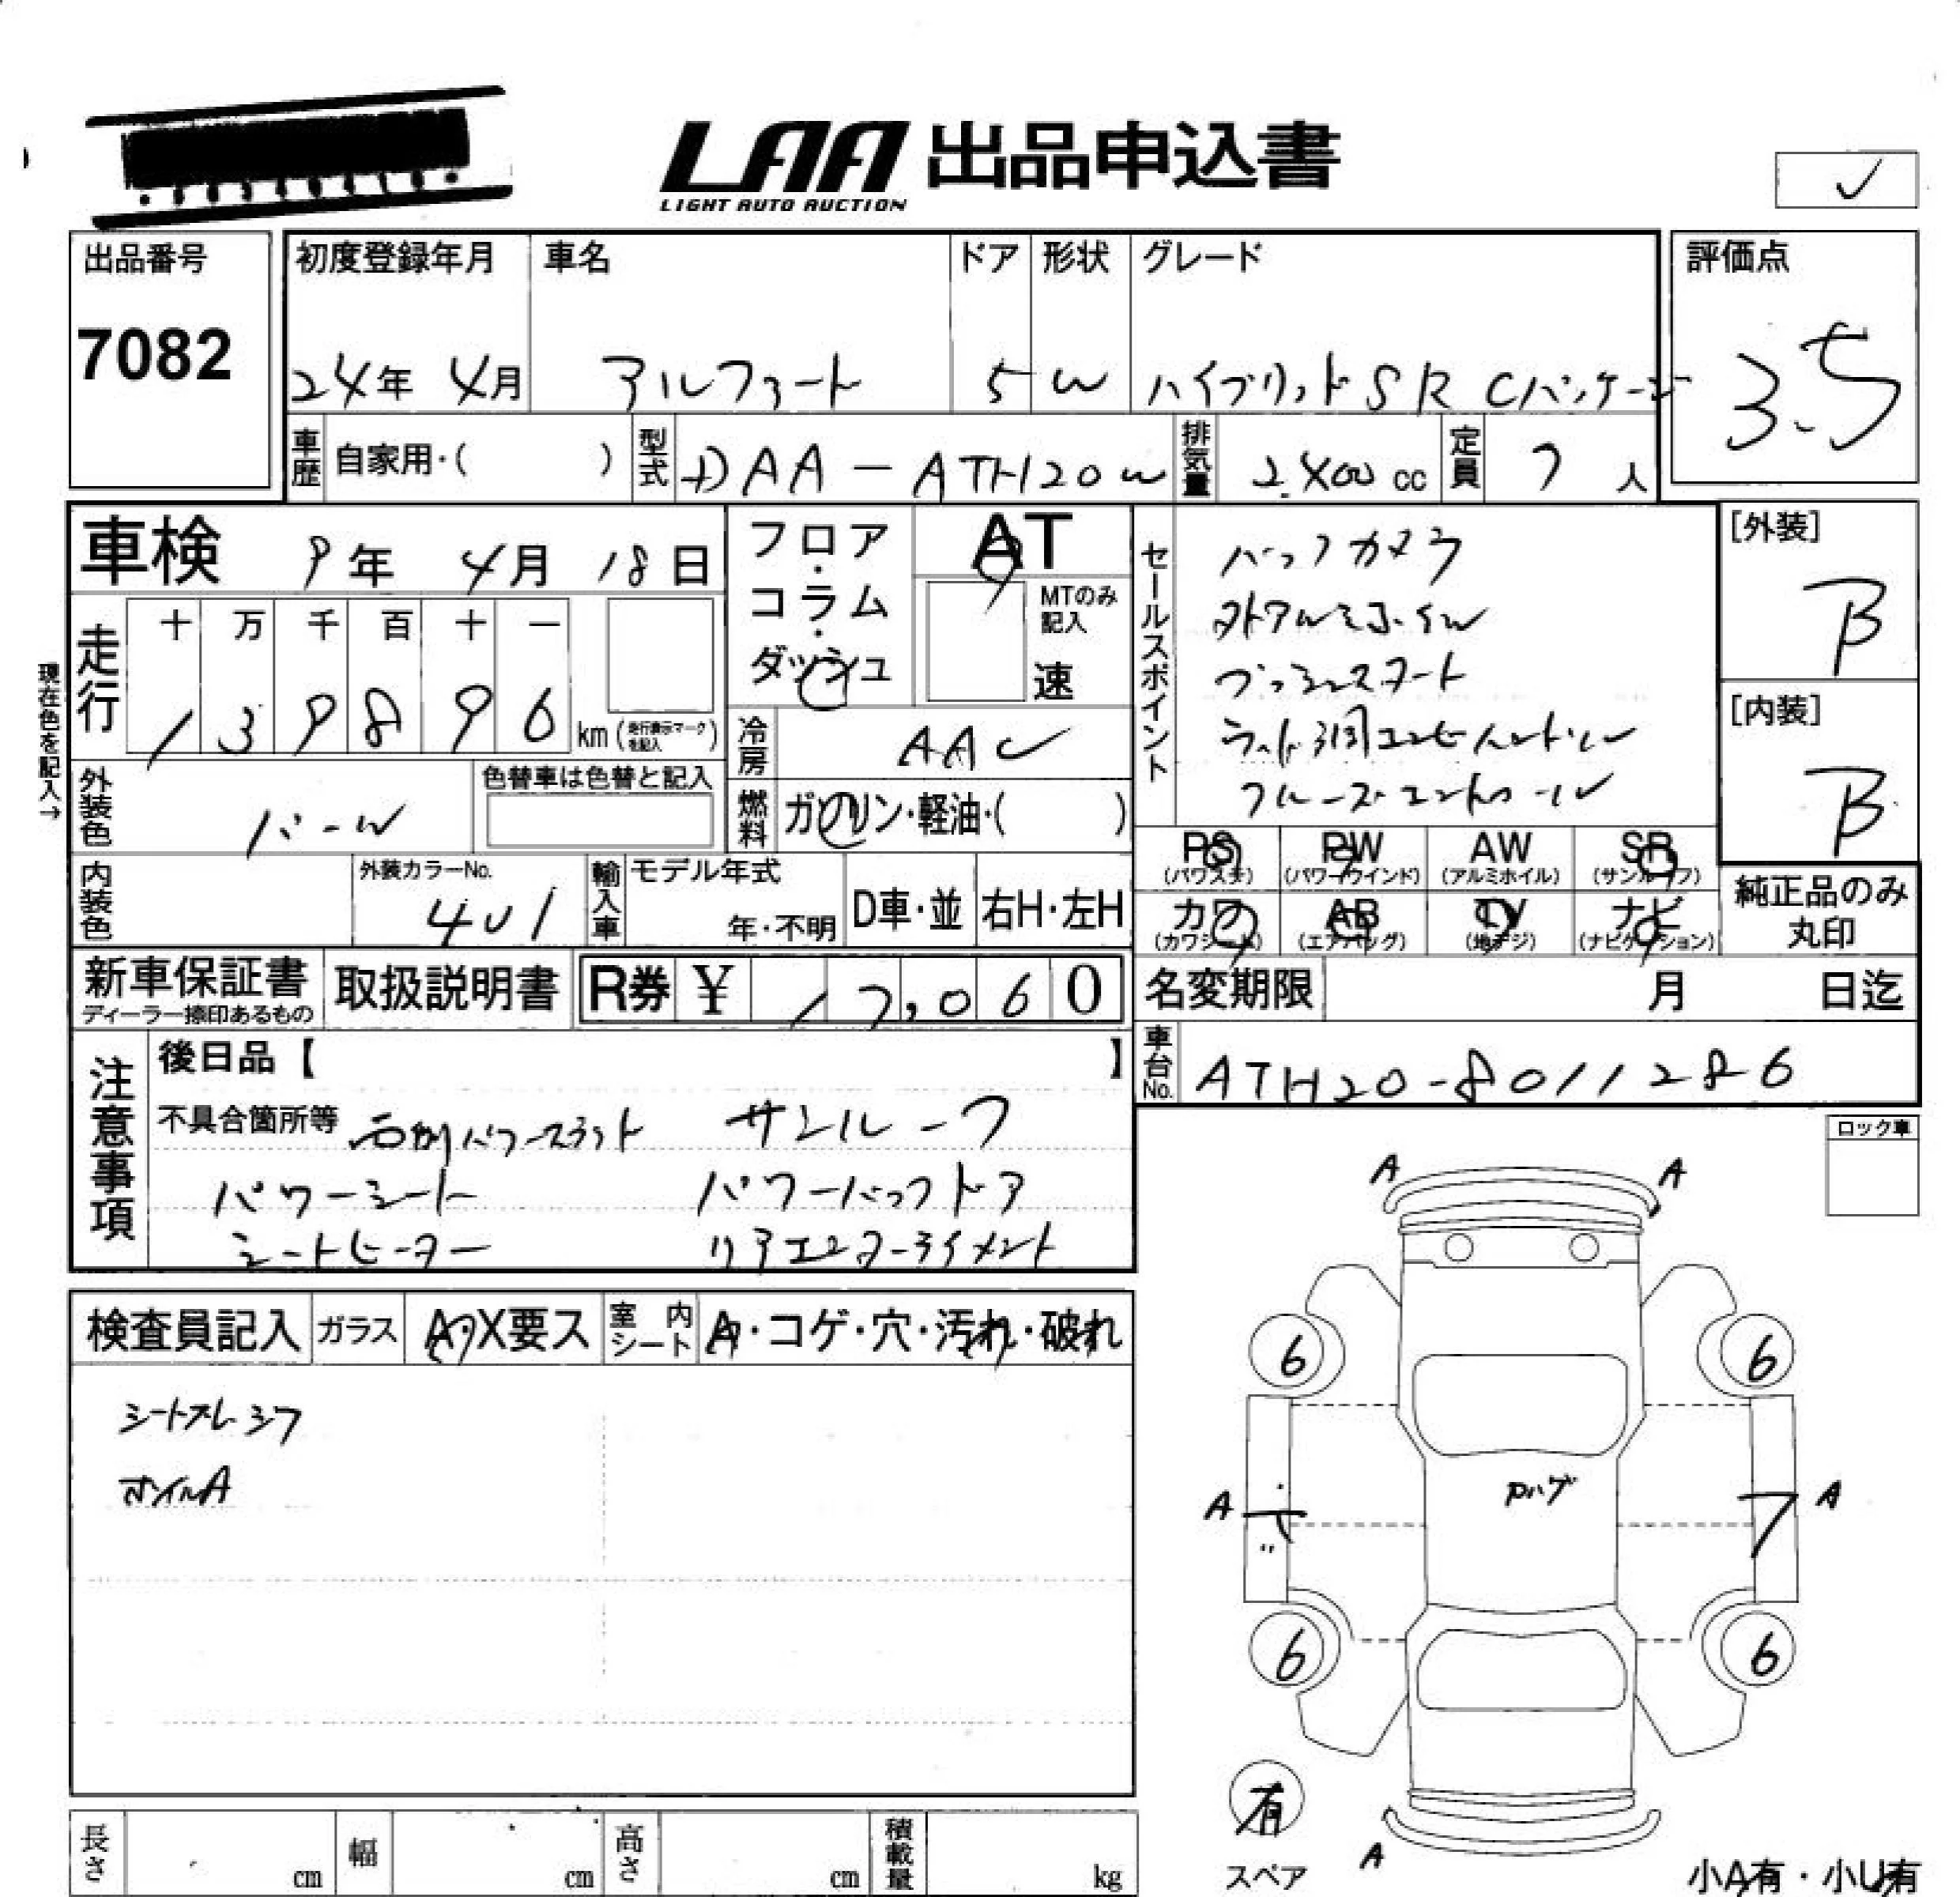 LAA 出品申込書
LIGHT AUTO AUCTION
出品番号
7082
初度登録年月
24年 4月
車名
アルファード
ドア
5
形状
W
グレード
ハイブリッド SR Cパッケージ
評価点
3.5
車歴 自家用・( )
型式 DAA-ATH20W
排気量 2400 cc
定員 7人
車検 9年 4月 18日
走行
十 万 千 百 十 一
1 3 9 8 9 6 km (走行表示マークを記入)
現在色を記入→
フロア・コラム・ダッシュ
AT
MTのみ記入
速
冷房 AAC
燃料 ガソリン・軽油・( )
外装色 パール
色替車は色替と記入
内装色
外装カラーNo.
401
輸入車
モデル年式
年・不明
D車・並
右H・左H
セールスポイント
バックカメラ
外アルミホイル
プッシュスタート
クルーズコントロール
[外装]
B
[内装]
B
PS (パワステ)
PW (パワーウインド)
AW (アルミホイル)
SR (サンルーフ)
カワ (カワシート)
AB (エアバッグ)
TV (地デジ)
ナビ (ナビゲーション)
純正品のみ丸印
新車保証書
ディーラー捺印あるもの
取扱説明書
R券 ¥ 17,060
名変期限 月 日迄
車台No. ATH20-8011286
注意事項
後日品【 】
不具合箇所等 両側パワースライド サンルーフ
パワーシート パワーバックドア
シートヒーター リアエンターテイメント
ロック車
検査員記入
ガラス A・X要ス
室内シート A・コゲ・穴・汚れ・破れ
シートスレ シワ
ホイルA
A A
6 6
A A
6 6
有
スペア
A
小A有・小U有
長さ cm
幅 cm
高さ cm
積載量 kg